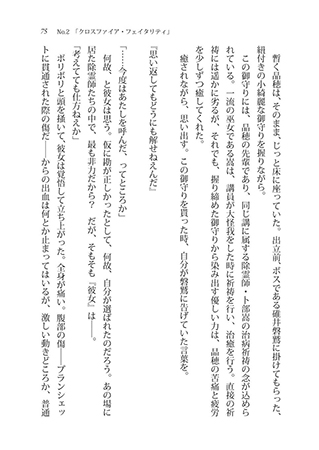 75　No.2 「クロスファイア・フェイタリティ」
　暫く晶穂は、そのまま、じっと床に座っていた。出立前、ボスである碓井磐鷲に掛けてもらった、
紐付きの小綺麗な御守りを握りながら。
　この御守りには、晶穂の先輩であり、同じ講に属する除霊師・卜部嵩の治病祈祷の念が込めら
れている。一流の巫女である嵩は、講員が大怪我をした時に祈祷を行い、治癒を行う。直接の祈
祷には遥かに劣るが、それでも、握り締めた御守りから染み出す優しい力は、晶穂の苦痛と疲労
を少しずつ癒してくれた。
　癒されながら、思い出す。この御守りを貰った時、自分が磐鷲に告げていた言葉を。
『思い返してもどうにも解せねえんだ』
「……今度はあたしを呼んだ、ってところか」
　何故、と彼女は思う。仮に勘が正しかったとして、何故、自分が選ばれたのだろう。あの場に
居た除霊師たちの中で、最も非力だから？　だが、そもそも『彼女』は――。
「考えてても仕方ねえか」
　ボリボリと頭を掻いて、彼女は覚悟して立ち上がった。全身が痛い。腹部の傷――ブランシェッ
トに貫通された際の傷だ――からの出血は何とか止まってはいるが、激しい動きどころか、普通